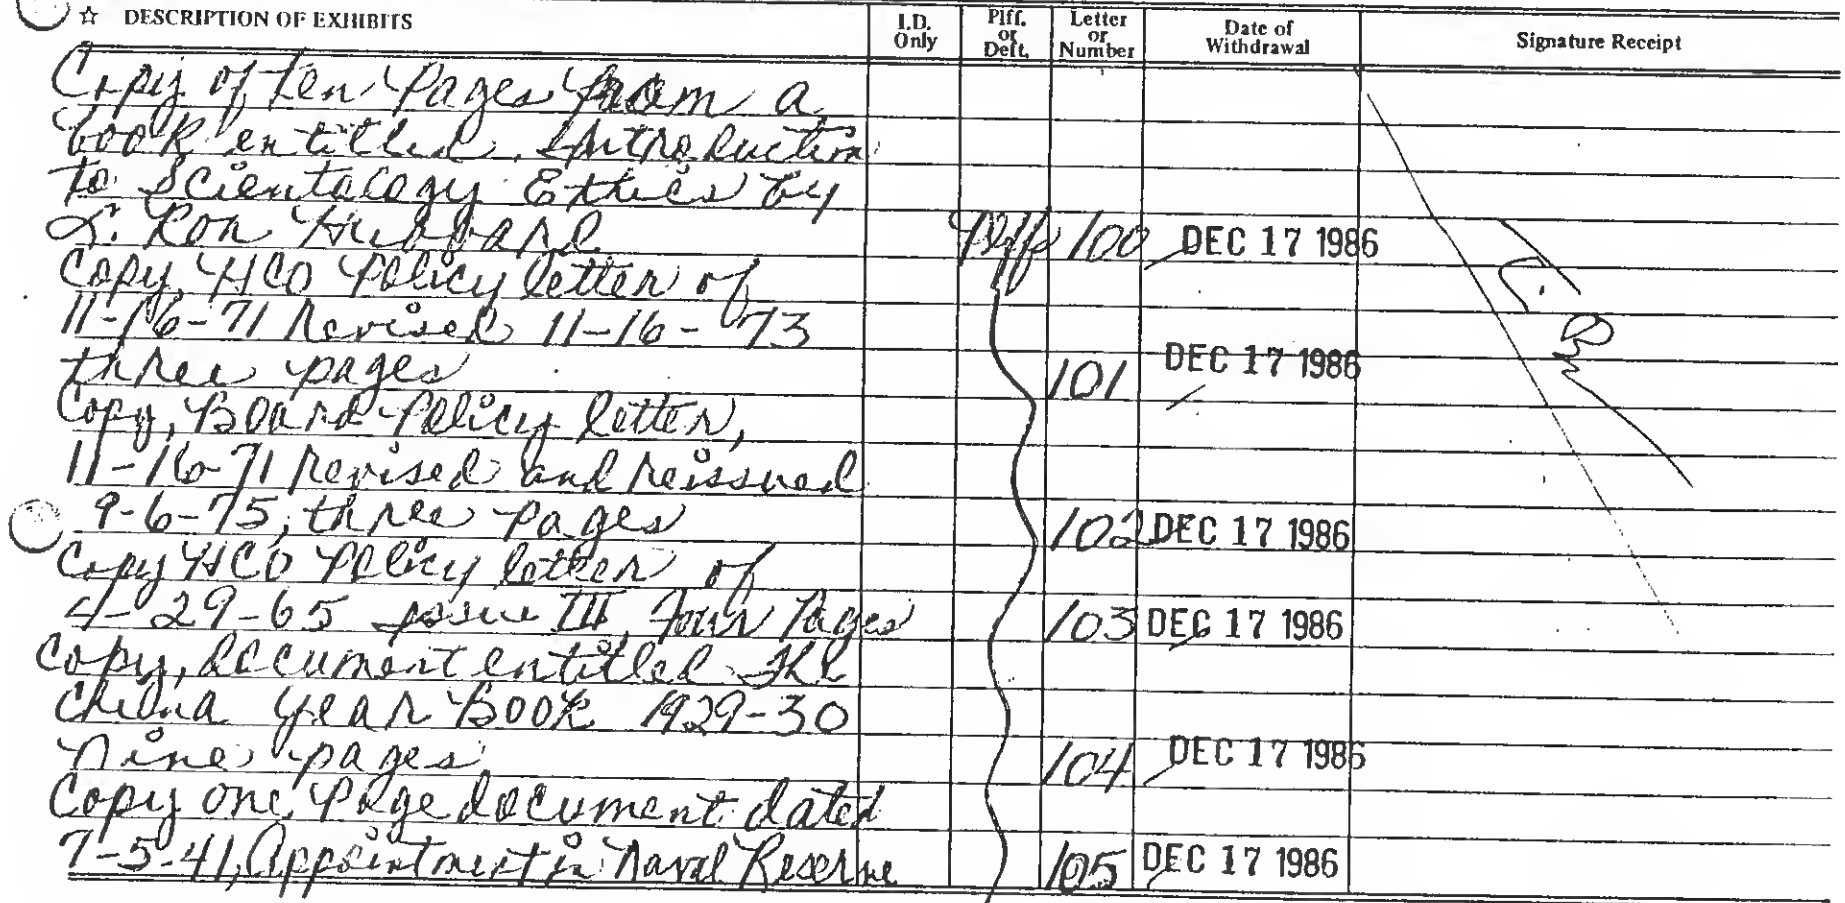 ☆ DESCRIPTION OF EXHIBITS I.D. Only Plff. or Deft. Letter or Number Date of Withdrawal Signature Receipt
Copy of ten pages from a
book entitled, Introduction
to Scientology Ethics by
L. Ron Hubbard Plff 100 DEC 17 1986
Copy, HCO Policy letter of
11-16-71 Revised 11-16-73
three pages 101 DEC 17 1986
Copy, Board Policy letter,
11-16-71 revised and reissued
9-6-75, three pages 102 DEC 17 1986
Copy HCO Policy letter of
4-29-65 issue III, Four Pages 103 DEC 17 1986
Copy, document entitled The
China Year Book 1929-30
nine pages 104 DEC 17 1986
Copy one page document dated
7-5-41, Appointment in Naval Reserve 105 DEC 17 1986